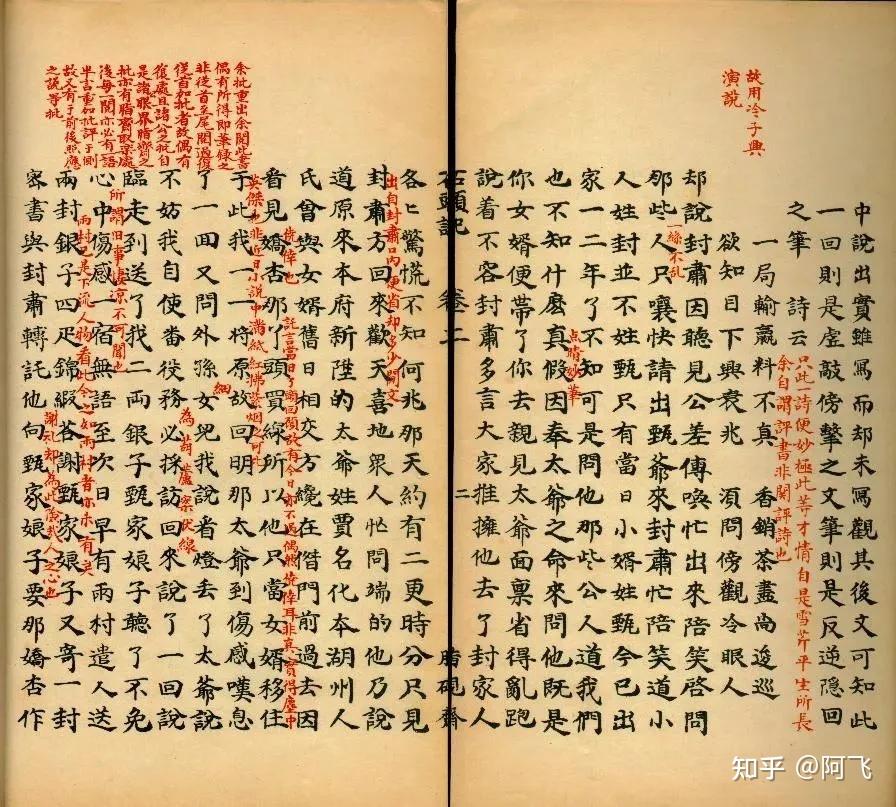 中說出實雖寫而却未寫觀其後文可知此
一回則是虛敲傍擊之文筆則是反逆隱回
之筆 詩云
只此一詩便妙極此等才情自是雪芹平生所長
余自謂評書非関評詩也
一局輸贏料不真 香銷茶盡尚逡巡
故用冷子興
演說
欲知目下興衰兆 須問傍觀冷眼人
却說封肅因聽見公差傳喚忙出來陪笑啓問
一絲不乱
那些人只嚷快請出甄爺來封肅忙陪笑道小
人姓封並不姓甄只有當日小婿姓甄今已出
家一二年了不知可是問他那些公人道我們
點睛妙筆
也不知什麽真假因奉太爺之命來問他既是
你女婿便帶了你去親見太爺面稟省得亂跑
說着不容封肅多言大家推擁他去了封家人
石頭記 卷二 二 脂硯齋
各々驚慌不知何兆那天約有二更時分只見
出自封肅口內便省却多少閒文
封肅方回來歡天喜地衆人忙問端的他乃說
道原來本府新陞的太爺姓賈名化本湖州人
氏曾與女婿舊日相交方纔在偺門前過去因
僥倖也
託言當日丫頭回顧故有今日亦不過偶然僥倖耳非真實得塵中
看見嬌杏那丫頭買線所以他只當女婿移住
英傑也非近日小說中滿紙紅拂紫烟之可比
于此我一一將原故回明那太爺到傷感嘆息
細
了一回又問外孫女兒我說看燈丟了太爺說
為葫蘆案伏線
不妨我自使番役務必採訪回來說了一回說
臨走到送了我二兩銀子甄家娘子聽了不免
所謂旧事凄凉不可聞也
心中傷感一宿無語至次日早有雨村遣人送
雨村已是下流人物看此今之如雨村者亦未有矣
兩封銀子四疋錦緞答謝甄家娘子又寄一封
謝礼却為此險哉人之心也
密書與封肅轉託他向甄家娘子要那嬌杏作
余批重出余閱此書
偶有所得即筆錄之
非從首至尾閱過復
從首加批者故偶有
復處且諸公之批自
是諸公眼界脂齋之
批亦有脂齋取樂處
後每一閱亦必有一語
半言重加批評于側
故又有于前後照應
之說等批
知乎 @阿飞